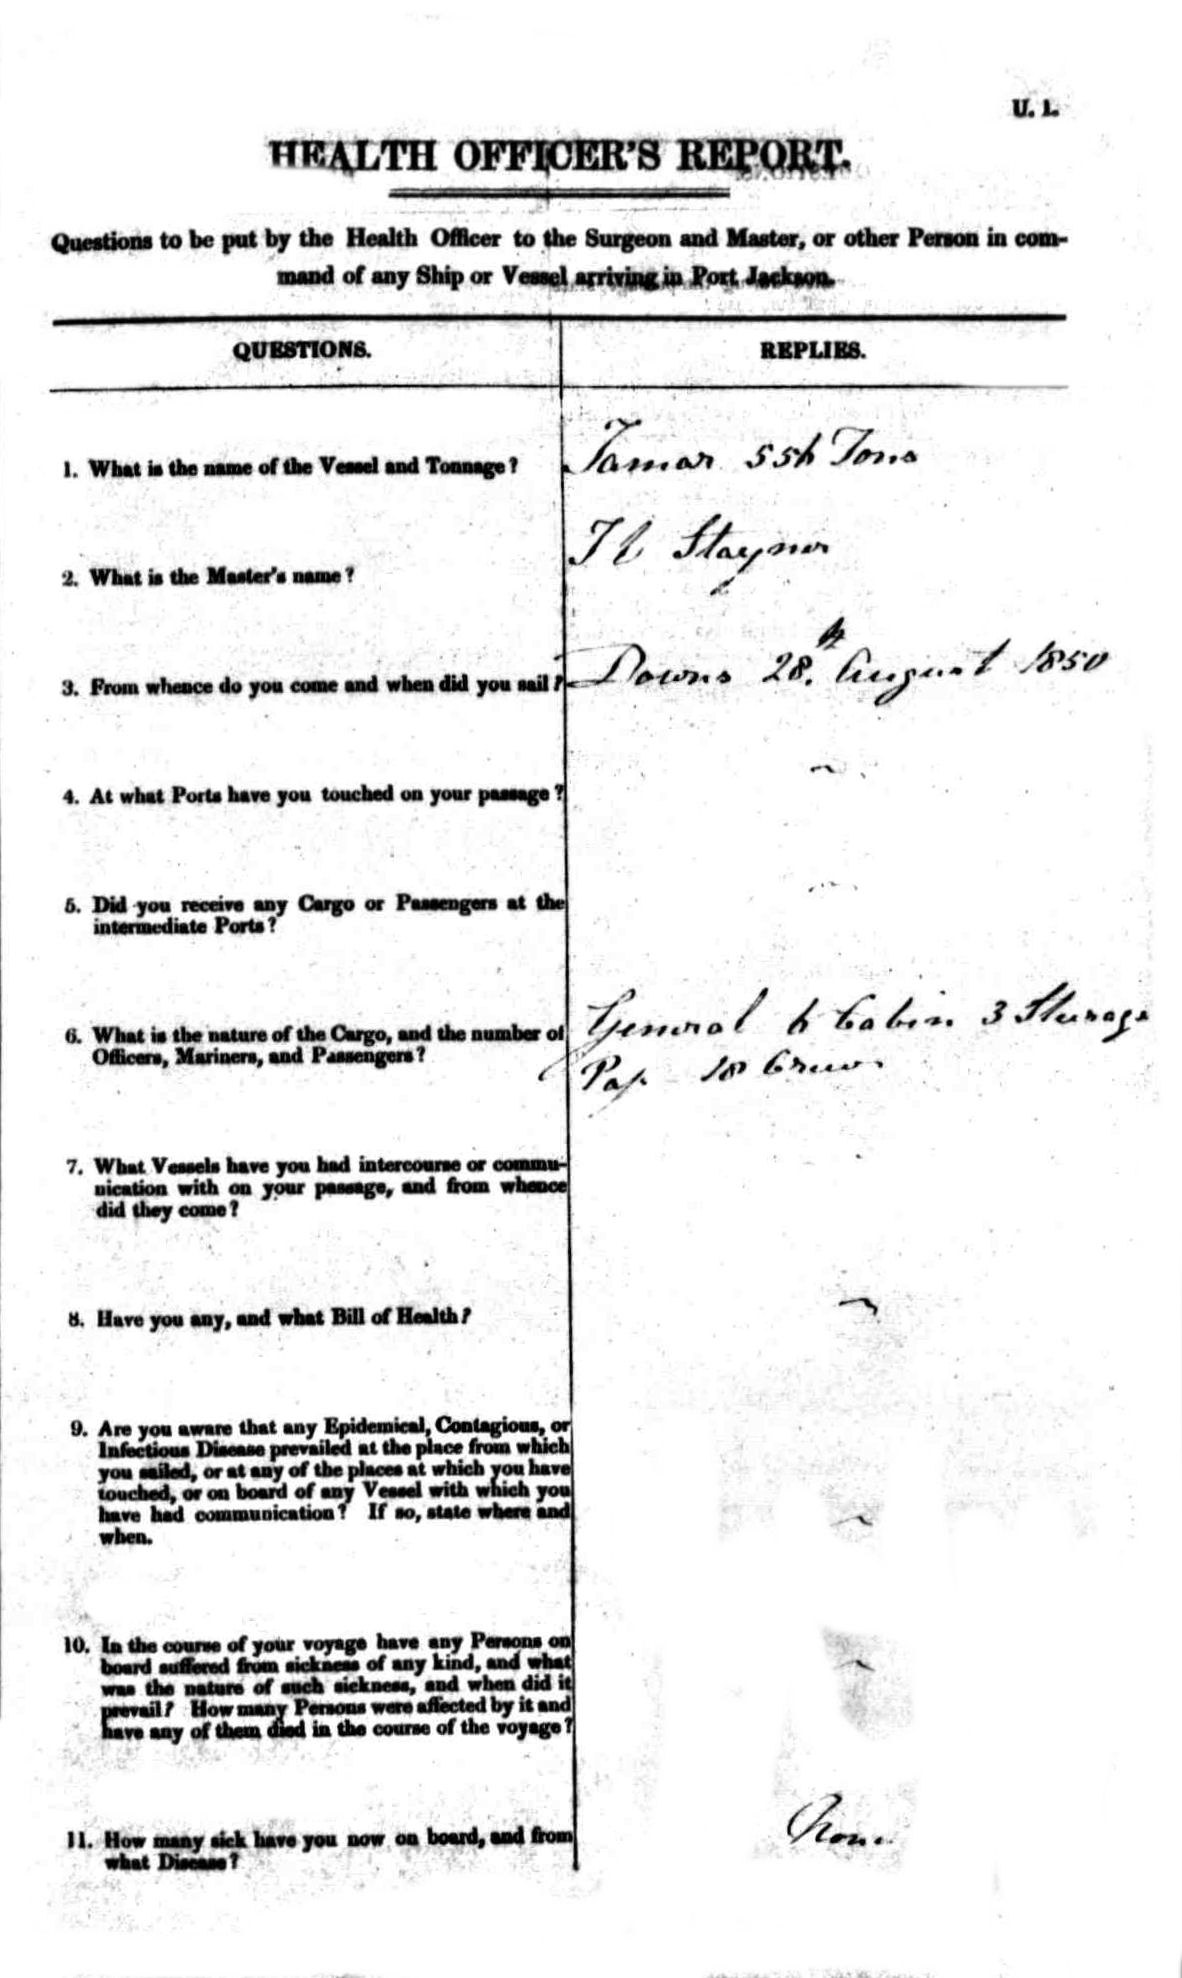 U. 1.
HEALTH OFFICER'S REPORT.
Questions to be put by the Health Officer to the Surgeon and Master, or other Person in com-
mand of any Ship or Vessel arriving in Port Jackson.
QUESTIONS. REPLIES.
1. What is the name of the Vessel and Tonnage? Tamar 556 Tons
2. What is the Master's name? Stayner
3. From whence do you come and when did you sail? Downs 28th August 1850
4. At what Ports have you touched on your passage?
5. Did you receive any Cargo or Passengers at the
intermediate Ports?
6. What is the nature of the Cargo, and the number of General 6 Cabin 3 Steerage
Officers, Mariners, and Passengers? Pass 18 Crew
7. What Vessels have you had intercourse or commu-
nication with on your passage, and from whence
did they come?
8. Have you any, and what Bill of Health?
9. Are you aware that any Epidemical, Contagious, or
Infectious Disease prevailed at the place from which
you sailed, or at any of the places at which you have
touched, or on board of any Vessel with which you
have had communication? If so, state where and
when.
10. In the course of your voyage have any Persons on
board suffered from sickness of any kind, and what
was the nature of such sickness, and when did it
prevail? How many Persons were affected by it and
have any of them died in the course of the voyage?
11. How many sick have you now on board, and from None
what Disease?